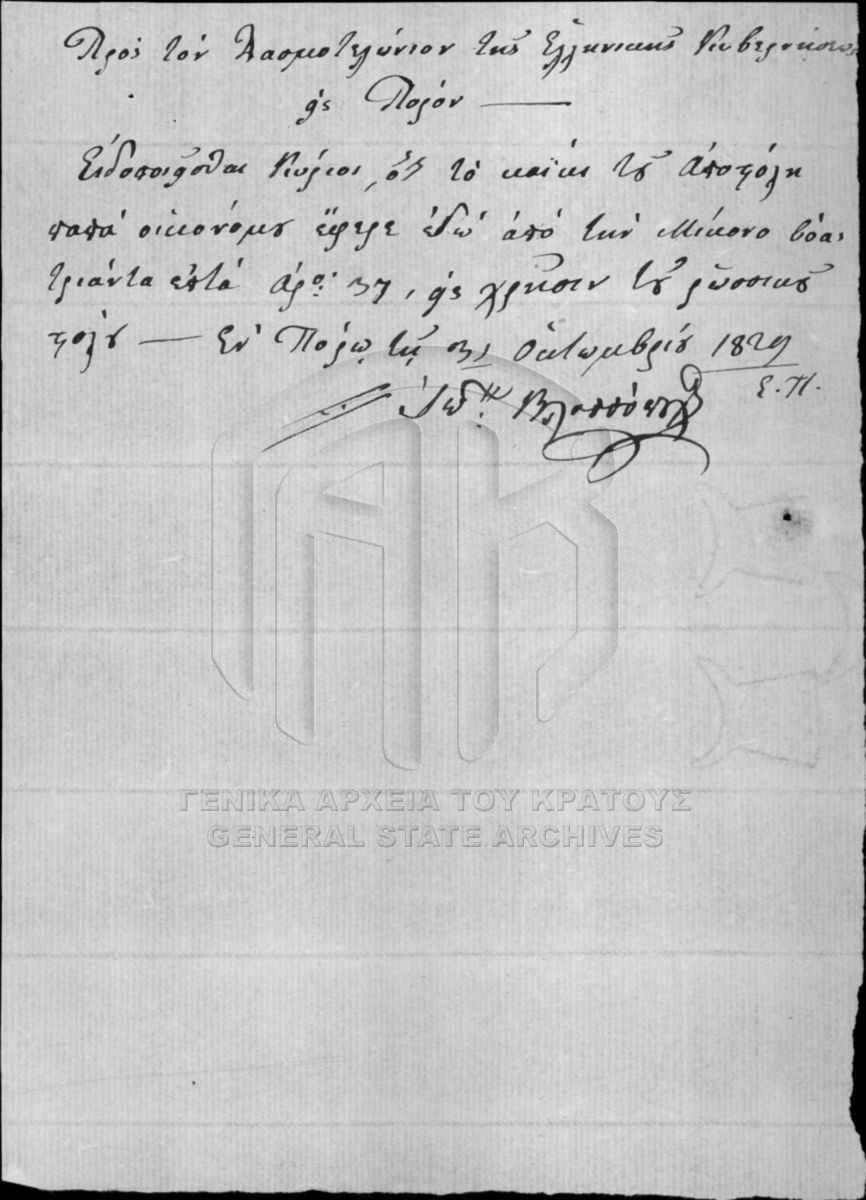 Πρὸς τὸν Δασμοτελώνιον τῆς Ἑλληνικῆς Κυβερνήσεως
εἰς Πόρον
Εἰδοποιεῖσθαι Κύριοι, ὅτι τὸ καΐκι τοῦ ἀποστόλη
παπᾶ οἰκονόμου ἔφερε ἐδῶ ἀπὸ τὴν Μίκονο βόδια
τριάντα ἑπτά ἀρ: 37, εἰς χρῆσιν τοῦ ρωσσικοῦ
στόλου — Ἐν Πόρῳ τῇ 31 Ὀκτωμβρίου 1829
Ε.Π.
ΓΕΝΙΚΑ ΑΡΧΕΙΑ ΤΟΥ ΚΡΑΤΟΥΣ
GENERAL STATE ARCHIVES